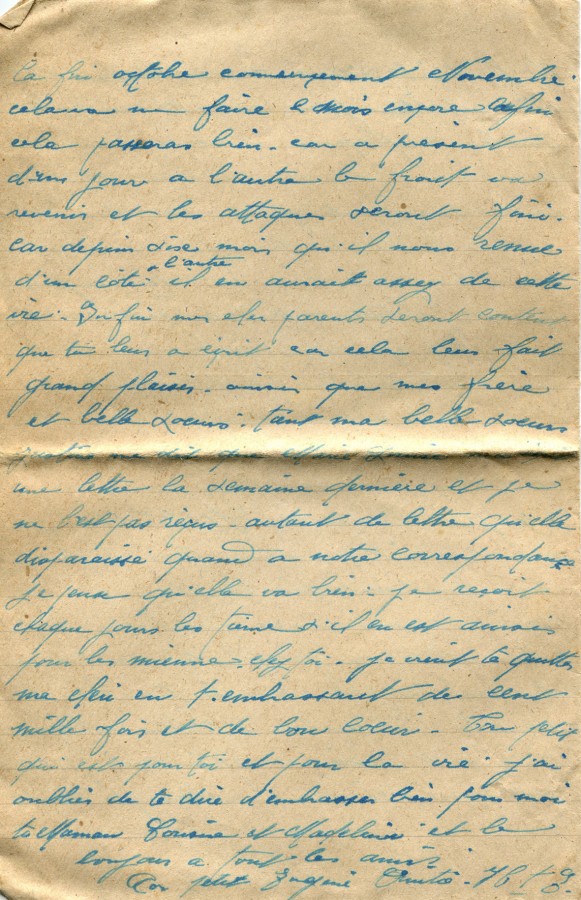 la fin octobre commencement Novembre.
cela va me faire 2 mois encore enfin
cela passeras bien. car a présent
d'un jour a l'autre le froit va
revenir et les attaques seront fini.
car depuis dise mois qu'il nous remue
d'un côté a l'autre il en aurait assez de cette
vie. Enfin mes cher parents seront content
que tu leur a écrit car cela leur fait
grand plaisir. ainsi que mes frère
et belle soeurs. tant ma belle soeur
me dit que
une lettre la semaine dernière et je
ne l'est pas reçus. autant de lettre qu'elle
disparaisse quand a notre correspondance
je pense qu'elle va bien. je reçoit
chaque jours les tienne s'il en est ainsis
pour les mienne chez toi. je vient te quitter
ma chéri en t'embrassant de cent
mille fois et de bon coeur. Ton petit
qui est pour toi et pour la vie. j'ai
oubliés de te dire d'embrasser bien pour moi
ta Maman Cousine et Magdeleine et le
bonjour a tout les amis.
Ton petit Eugène